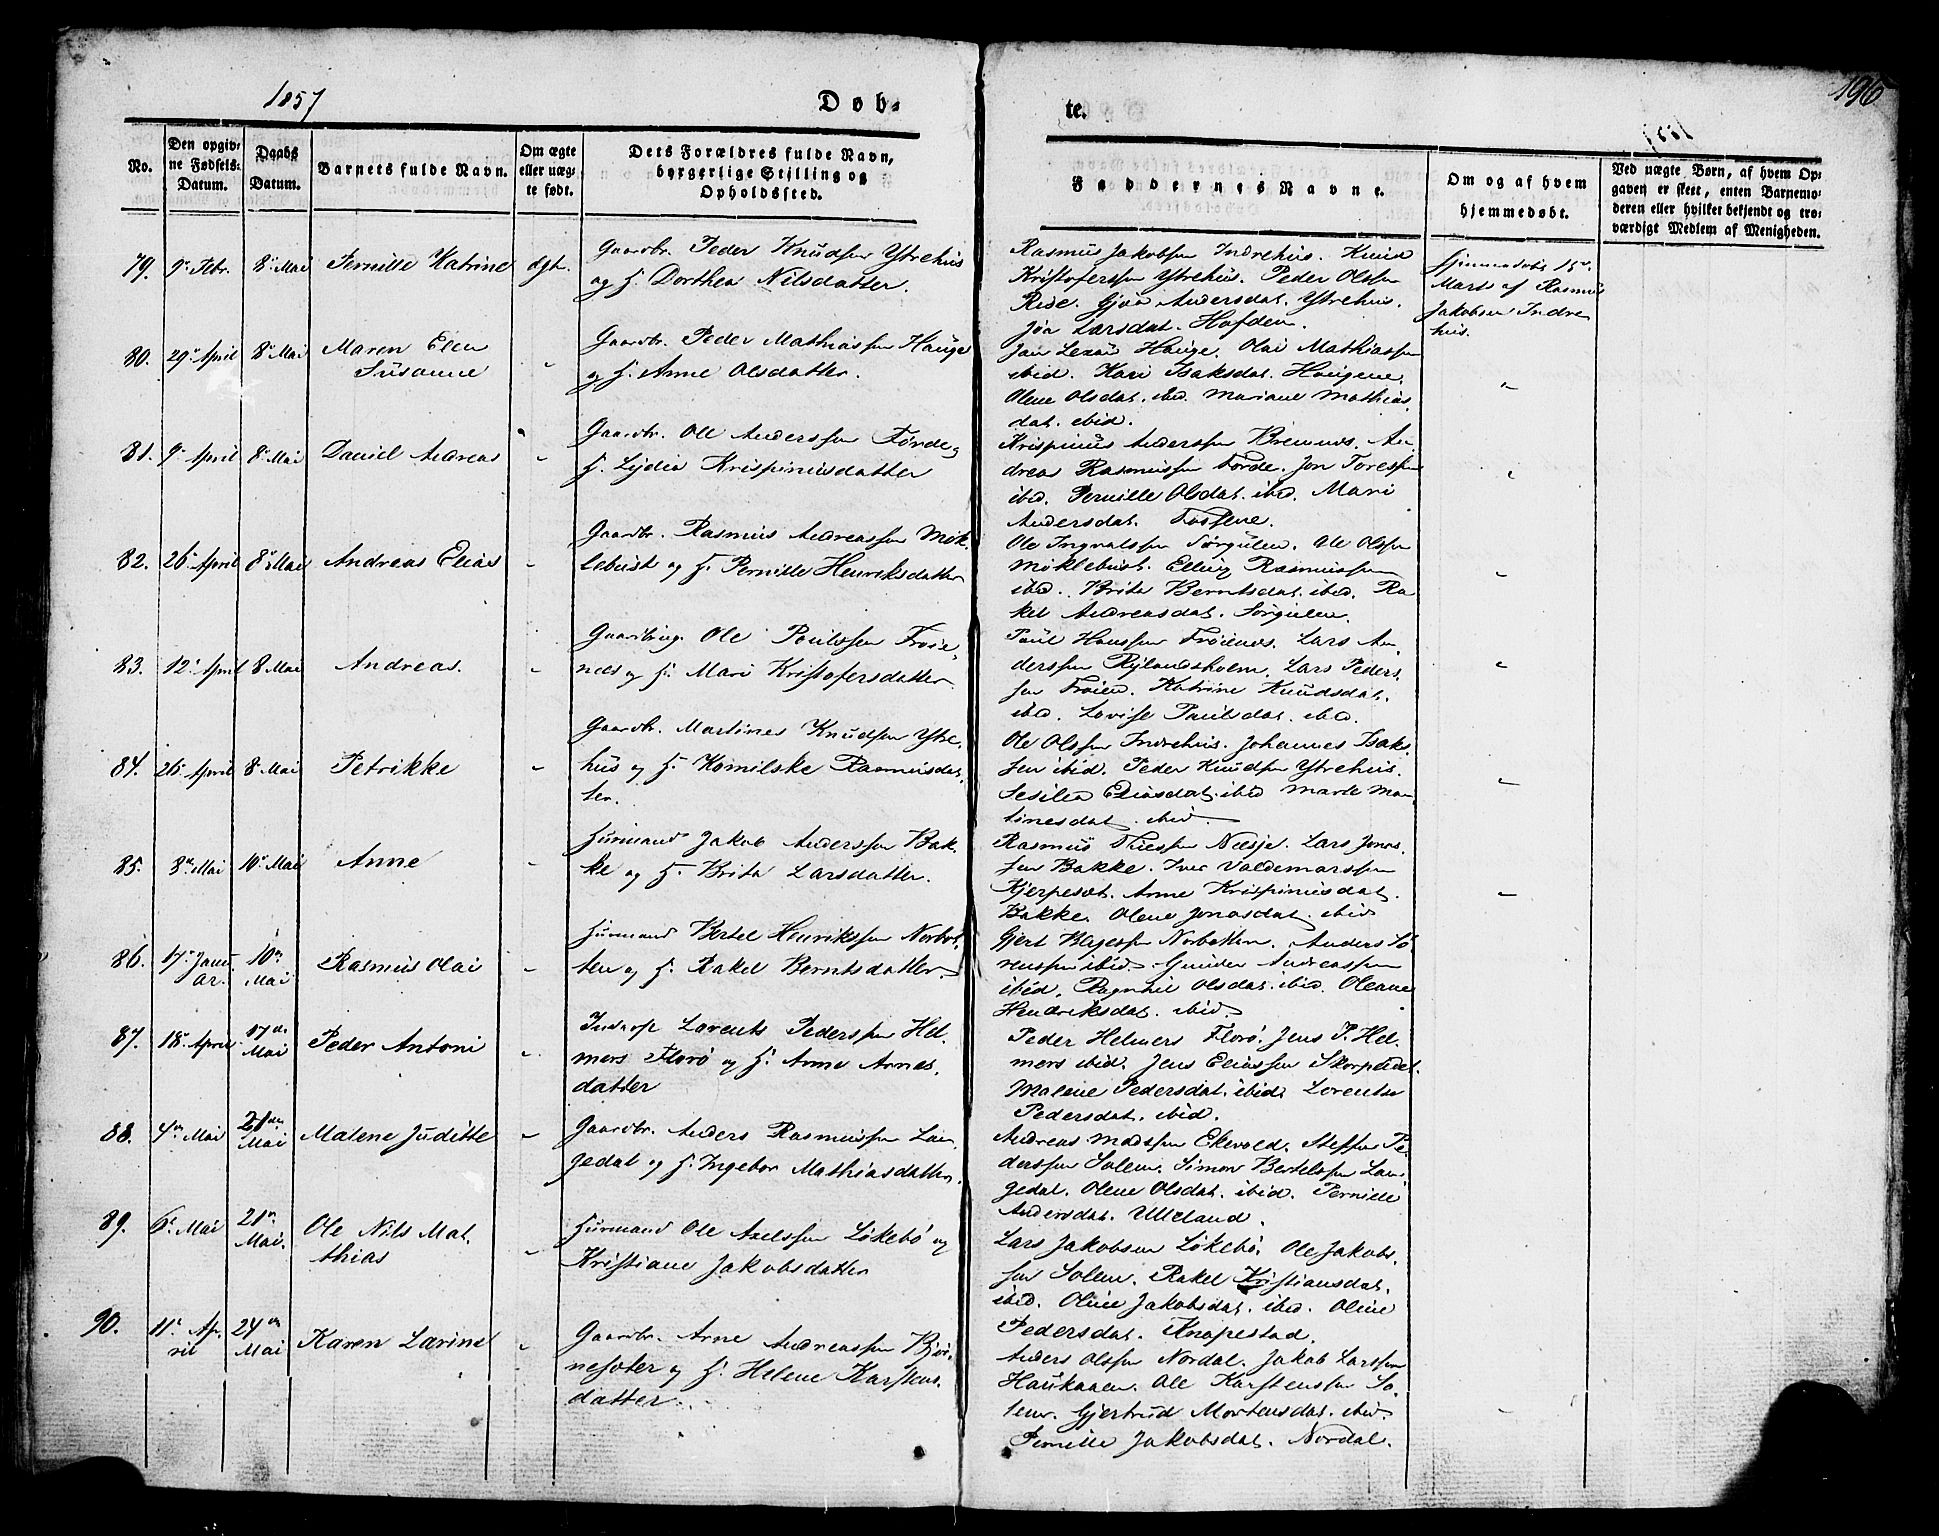 1857
Døb-
te.
196
No.
Den opgiv-
ne Fødsels-
Datum.
Daabs
Datum.
Barnets fulde Navn.
Om ægte
eller uæg-
te født.
Dets Forældres fulde Navn,
borgerlige Stilling og
Opholdssted.
Faddernes Navne.
Om og af hvem
hjemmedøbt.
Ved uægte Børn, af hvem Op-
gaven er skeet, enten Barnemo-
deren eller hvilket bekjendt og tro-
værdigt Medlem af Menigheden.
79. 9. Febr. 8. Mai Pernille Katrine
Gaardbr. Peder Knudsen Ytrehus
og H. Dorthea Nilsdatter.
Rasmus Jakobsen Indrehus. Knud
Kristofersen Ytrehus. Peder Olsen
Risе. Gjøa Andersdat. Ytrehus.
Jøa Larsdat. Hafden.
Hjemmedøbt 15de
Mars af Rasmus
Jakobsen Indre
hus.
80. 29. April 8. Mai Maren Elen
Susanne
"
Gaardbr. Peder Mathiassen Hauge
og H. Anne Olsdatter.
Hauge. Olai Mathiassen
ibid. Kari Isaksdat. Haugene.
Olene Olsdat. ibid. Mariane Mathias-
dat. ibid.
"
81. 9. April 8. Mai Daniel Andreas
"
Gaardbr. Ole Anderssen Førde og
H. Lydia Krispinusdatter
Krispinus Anderssen Bremnes. An-
dreas Rasmussen Førde. Jon Toressen
ibid. Pernille Olsdat. ibid. Mari
Andersdat.
"
82. 26. April 8. Mai Andreas Elias
"
Gaardbr. Rasmus Andreassen Møk-
lebust og H. Pernille Henriksdatter
Ole Ingvalssen Sørgulen. Ole Olssen
Møklebust. Elling Rasmussen
ibid. Brita Berntsdat. ibid. Ra-
kel Andreasdat. Sørgulen.
"
83. 12. April 8 Mai Andreas.
"
Gaardbrug. Ole Paulssen Frøie-
nes og H. Mari Kristofersdatter.
Paul Hanssen Frøienes. Lars An-
derssen Rylandsholm. Lars Peders-
sen Frøien. Katrine Knudsdat.
ibid. Lovise Paulsdat. ibid.
"
84. 26. April 8 Mai Petrikke
"
Gaardbr. Martines Knudsen Ytre-
hus og H. Rasmusdat-
ter.
Ole Olssen Indrehus. Johannes Isaks-
sen ibid. Peder Knudsen Ytrehus.
Sesilea Eliasdat. ibid Marte Mar-
tinesdat. ibid.
"
85. 8de Mai 10. Mai Anne
"
Huusmand Jakob Anderssen Bak-
ke og H. Brita Larsdatter.
Rasmus Nesje. Lars Jonas-
sen Bakke. Iver Valdemarssen
Kjerpeset. Anne Krispinusdat.
Bakke. Olene Jonasdat. ibid
"
86. 17. Janu-
ar. 10de
Mai Rasmus Olai
"
Huusmand Bertel Henrikssen Norbot-
ten og H. Rakel Berntsdatter.
Gjert Norbotten. Anders Sø-
renssen ibid. Andreassen
ibid. Ragnhil Olsdat. ibid. Oleane
Hendriksdat. ibid.
87. 18. April 17de
Mai Peder Antoni
"
Lorents Pederssen Hel-
mers Florø og H. Anne Arnes-
datter
Peder Helmers Florø. Jens P. Hel-
mers ibid. Jens Eliassen
Malene Pedersdat. ibid. Lorentse
Pedersdat. ibid.
88. 4de Mai 21de
Mai Malene Juditte
"
Gaardbr. Anders Rasmussen Lan-
gedal og H. Ingebor Mathiasdatter.
Andreas Madssen Ekevold. Steffen Pe-
derssen Solem. Simon Bertelssen Lan-
gedal. Olene Olsdat. ibid. Pernille
Andersdat. Ulleland.
89. 6. Mai 21de
Mai. Ole Nils Mat-
thias
"
Huusmand Ole Axelssen Løkebø og
Kristiane Jakobsdatter
Lars Jakobsen Løkebø. Ole Jakobs-
sen Solem. Rakel Kristiansdat.
ibid. Oline Jakobsdat. ibid. Oline
Pedersdat. Knapestad.
90. 11. Ap-
ril 24de
Mai Karen Larine
"
Gaardbr. Arne Andreassen Bjør-
nesøter og H. Helene Karstens-
datter.
Anders Olssen Nordal. Jakob Larssen
Haukaaen. Ole Karstenssen So-
lem. Gjertrud Mortensdat. ibid.
Pernille Jakobsdat. Nordal.
"